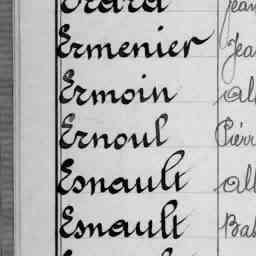 Erard Jean
Ermenier Jea
Ermoin Al
Ernoul Pierr
Esnault Alb
Esnault Bab